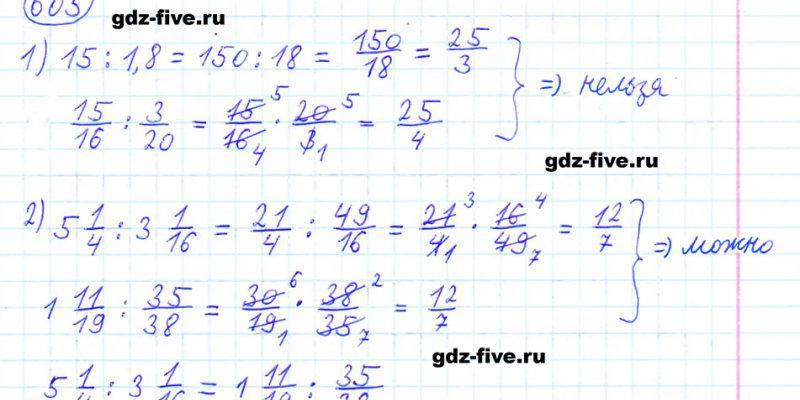 603
gdz-five.ru
1) 15 : 1,8 = 150 : 18 = 150/18 = 25/3
15/16 : 3/20 = 15/16 5 4 · 20/3 5 1 = 25/4
=> нельзя
gdz-five.ru
2) 5 1/4 : 3 1/16 = 21/4 : 49/16 = 21/4 3 1 · 16/49 4 7 = 12/7
1 11/19 : 35/38 = 30/19 6 1 · 38/35 2 7 = 12/7
=> можно
gdz-five.ru
5 1/4 : 3 1/16 = 1 11/19 : 35/38